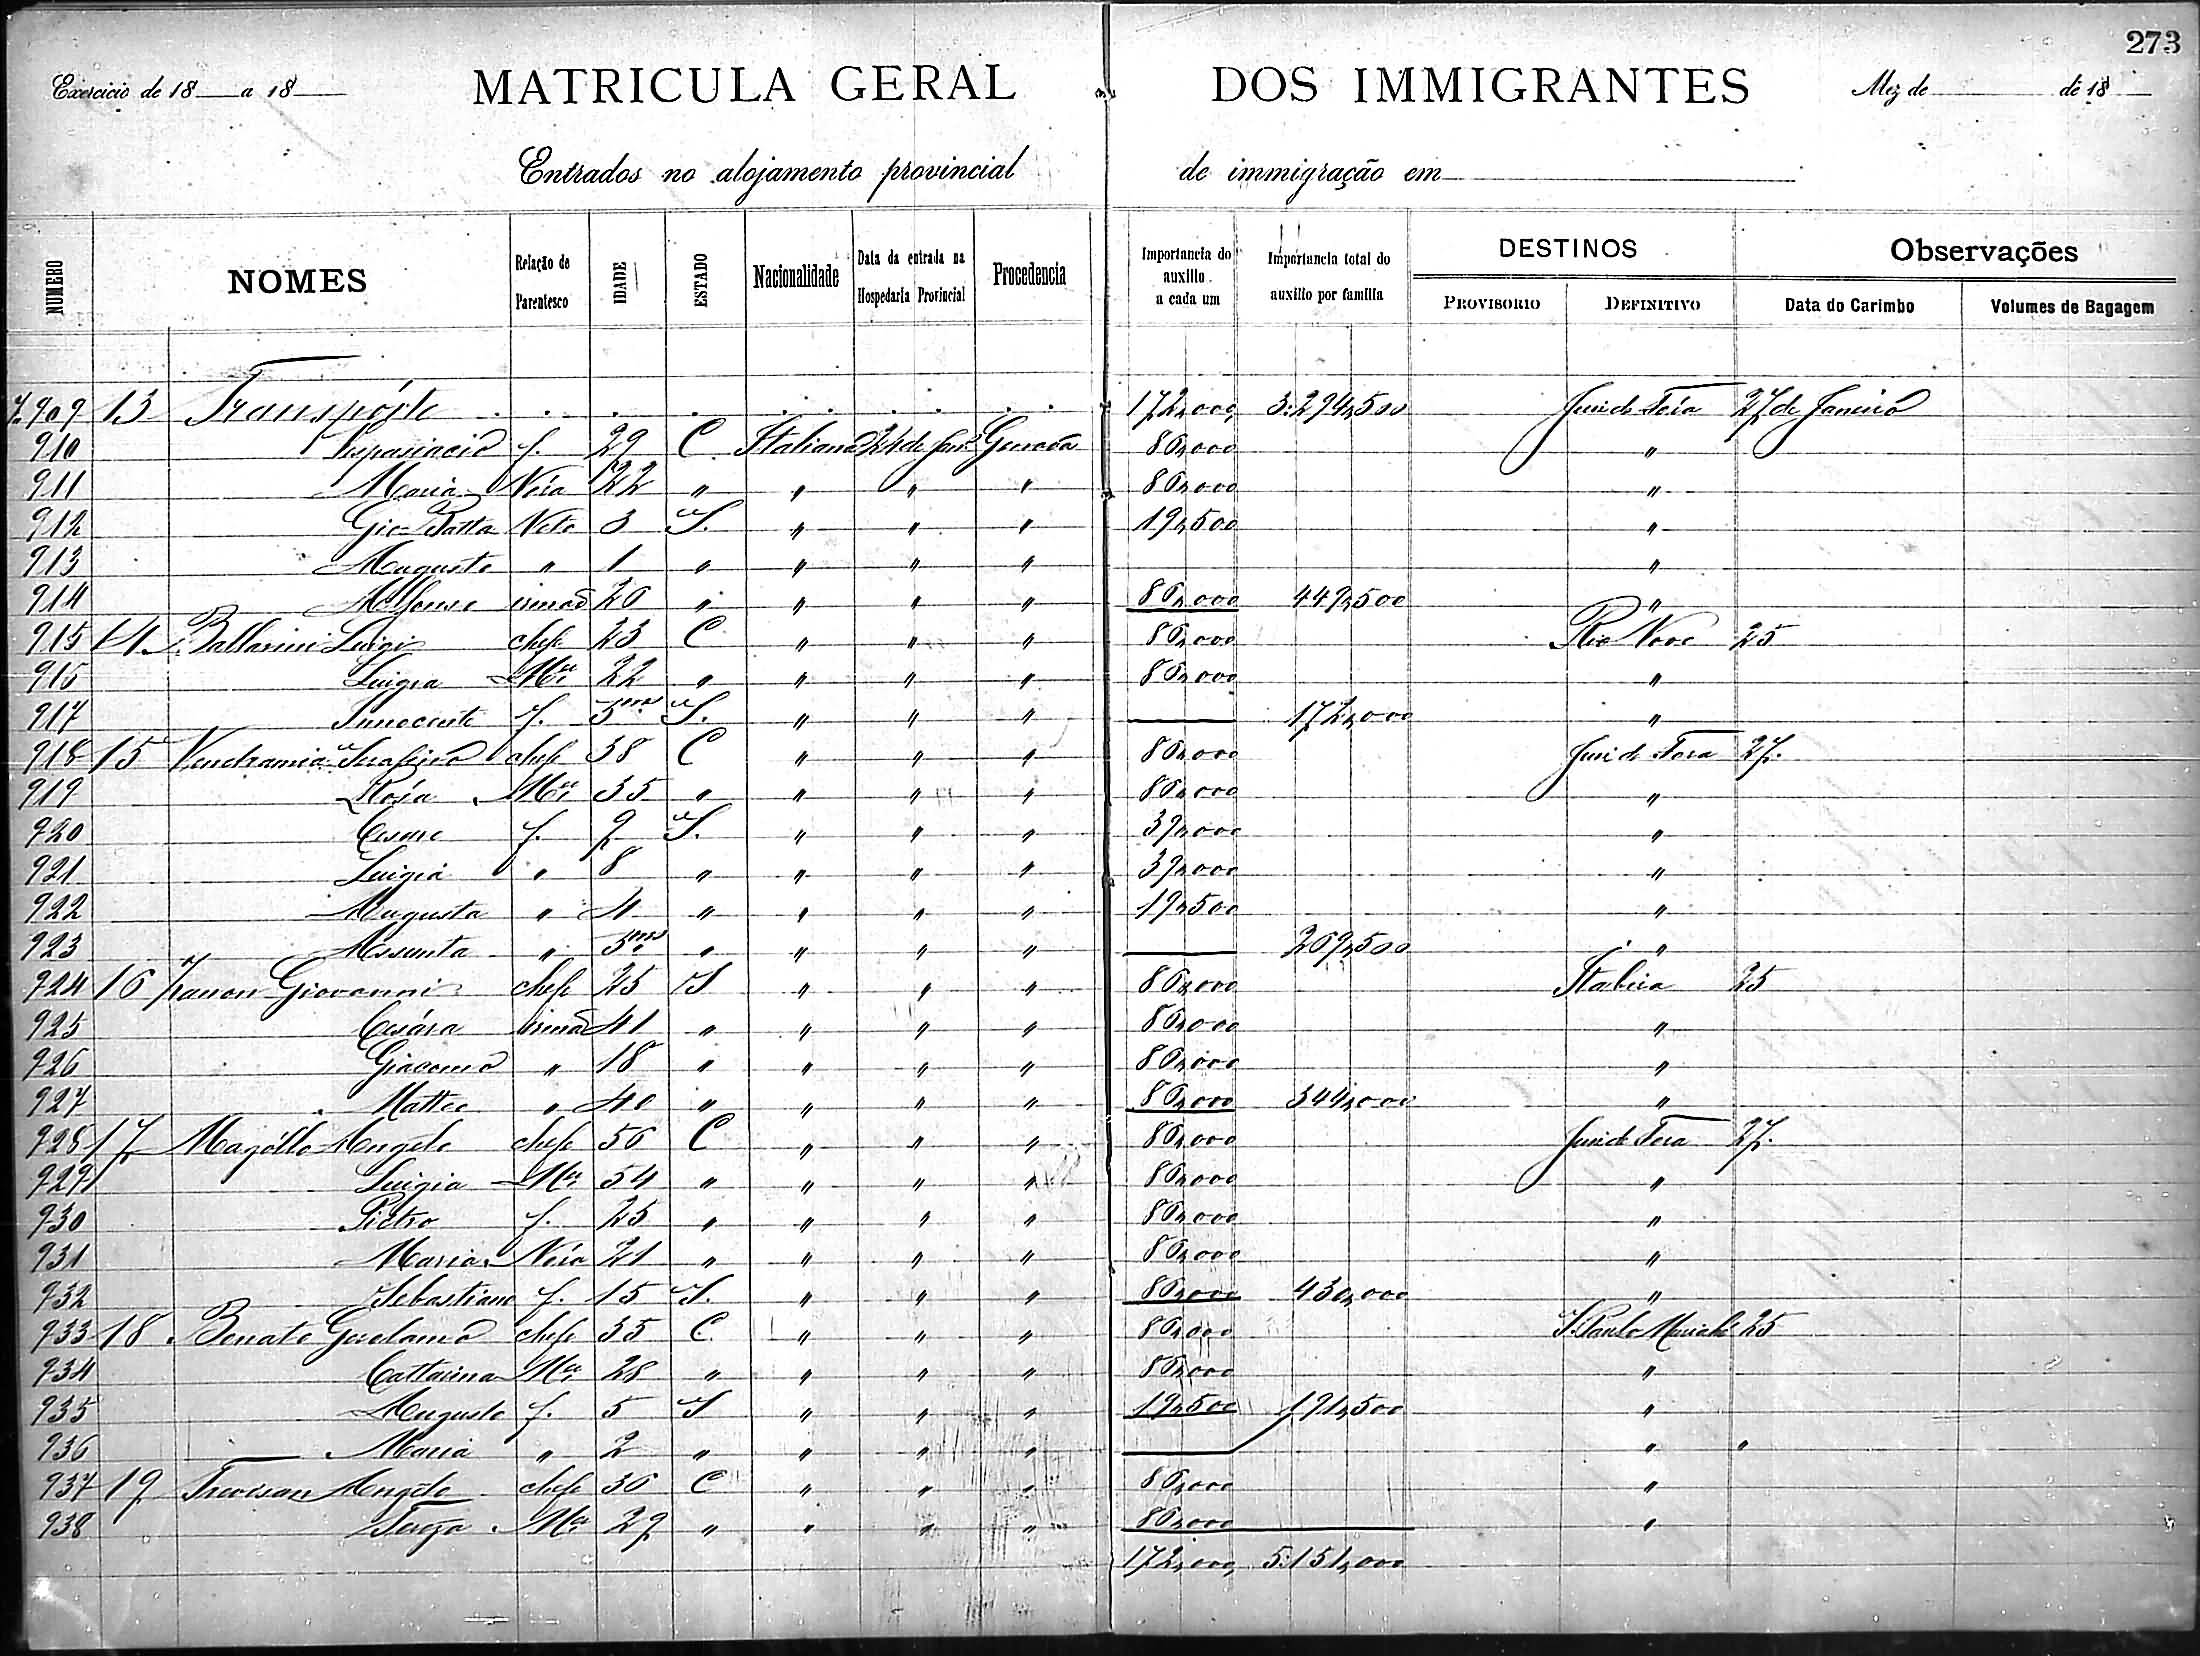 273
Exercicio de 18 a 18 MATRICULA GERAL DOS IMMIGRANTES Mez de de 18
Entrados no alojamento provincial de immigração em
NUMERO NOMES Relação de Parentesco IDADE ESTADO Nacionalidade Data da entrada na Hospedaria Provincial Procedencia Importancia do auxilio a cada um Importancia total do auxilio por familia DESTINOS PROVISORIO DEFINITIVO Observações Data do Carimbo Volumes de Bagagem
7.909 13 Transpórte . . . . . . . . . 172,000, 3:294,500 Juiz de Fóra 27 de Janeiro
910 f. 29 C Italiana 24 de Janº Genova 86,000 "
911 Maria Nóra 22 " " " " 86,000 "
912 Gio Batta Neto 3 S. " " " 19,500 "
913 Augusto " 1 " " " " "
914 Alfonso irmaõ 20 " " " " 86,000 449,500 "
915 14 Ballarini Luigi chefe 23 C " " " 86,000 Rio Novo 25
915 Luigia Mer 22 " " " " 86,000 "
917 Innocente f. 5 ms S. " " " 172,000 "
918 15 Vendramin Serafino chefe 38 C " " " 86,000 Juiz de Fora 27.
919 Rosa Mer 35 " " " " 86,000 "
920 Cesare f. 9 S. " " " 39,000 "
921 Luigia " 8 " " " " 39,000 "
922 Augusta " 4 " " " " 19,500 "
923 Assunta " 5 ms " " " " 269,500 "
924 16 Zanon Giovanni chefe 25 S " " " 86,000 Itabira 25
925 Cesára irmaõ 41 " " " " 86,000 "
926 Giacomo " 18 " " " " 86,000 "
927 Matteo " 40 " " " " 86,000 344,000 "
928 17 Magóllo Angelo chefe 56 C " " " 86,000 Juiz de Fora 27.
929 Luigia Mer 54 " " " " 86,000 "
930 Pietro f. 25 " " " " 86,000 "
931 Maria Nóra 21 " " " " 86,000 "
932 Sebastiano f. 15 S. " " " 86,000 430,000 "
933 18 Benato Gerolamo chefe 35 C " " " 86,000 S. Paulo Muriahé 25
934 Cattarina Mer 28 " " " " 86,000 "
935 Augusto f. 5 S " " " 19,500 191,500 "
936 Maria " 2 " " " " " "
937 19 Trevisan Angelo chefe 36 C " " " 86,000 "
938 Tereza Mer 29 " " " " 86,000 "
172,000, 5:151,000